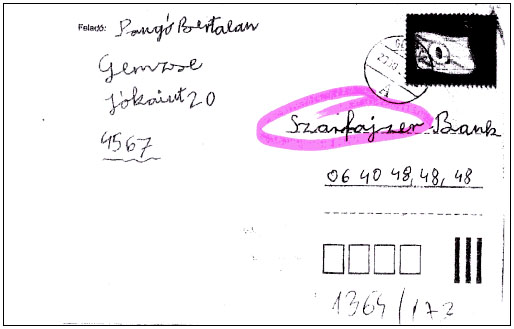 Feladó: Pongó Bertalan
Gemzse
Jókai út 20
4567
Szarfajzer Bank
06 40 48, 48, 48
1364/172